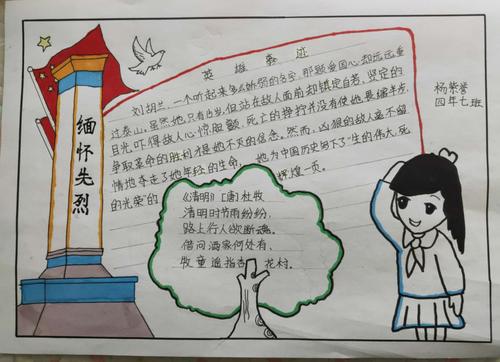 英雄事迹
刘胡兰,一个听起来多么娇弱的名字,那颗爱国心却远远重
过泰山,虽然她只有15岁,但站在敌人面前却镇定自若,坚定的
目光吓得敌人心惊胆颤,死亡的狰狞并没有使她畏缩半步,
争取革命的胜利才是她不灭的信念。然而,凶狠的敌人毫不留
情地夺走了她年轻的生命,她为中国历史写下了"生的伟大,死
的光荣"的辉煌一页。
缅怀先烈
《清明》[唐]杜牧
清明时节雨纷纷,
路上行人欲断魂。
借问酒家何处有,
牧童遥指杏花村。
四年七班